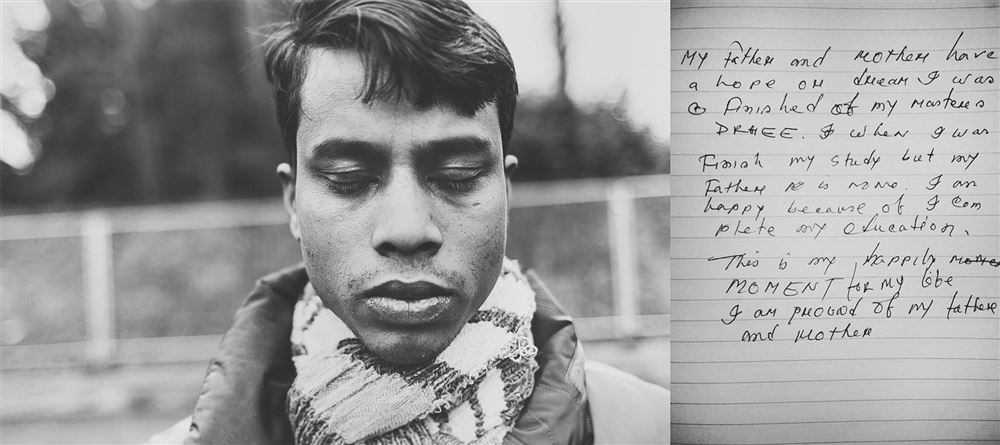 My Father and Mother have
a hope or dream I was
Finished of my Masters
DRHEE. I when I was
Finish my study but my
Father is none. I am
happy because of I com
plete my education.
This is my happily
MOMENT for my life
I am prouod of my father
and Mother